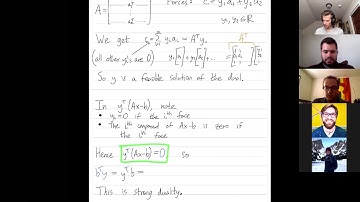 A =
Forces: c = y₁a₁ + y₂a₂
y₁, y₂ ∈ ℝ
We get c = Σ yᵢaᵢ = Aᵀy.
(all other yᵢ's are 0)
Aᵀ
So y is a feasible solution of the dual.
In yᵀ(Ax-b), note
• yᵢ = 0 if the iᵗʰ force
• The iᵗʰ component of Ax-b is zero if
the iᵗʰ force
Hence yᵀ(Ax-b) = 0, so
bᵀy = yᵀb =
This is strong duality.